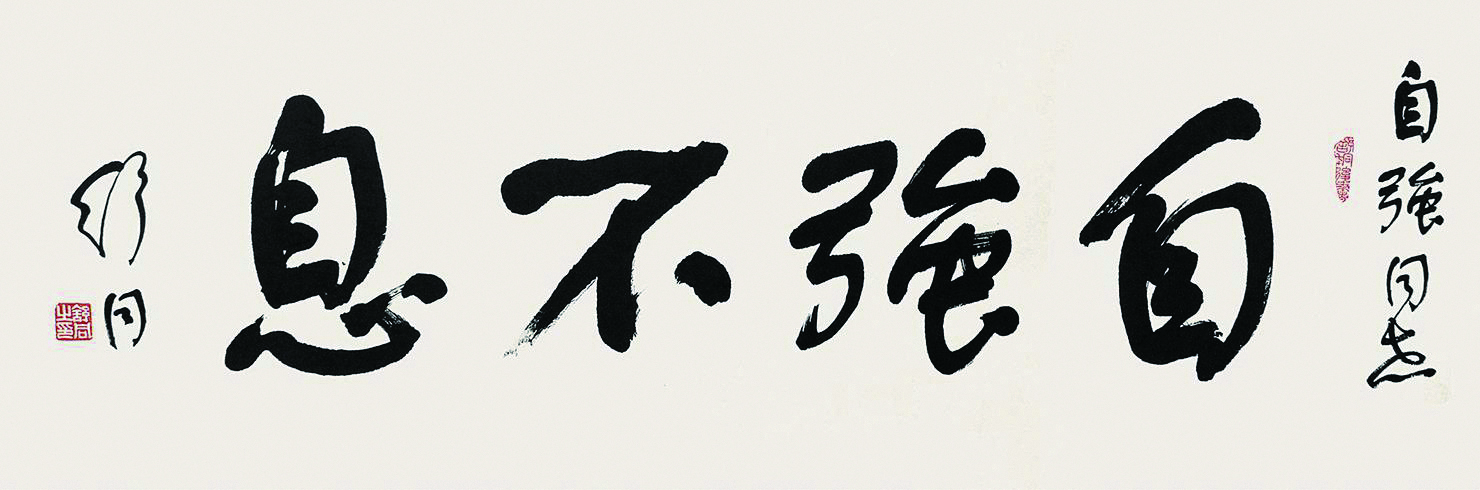 自強同志
自強不息
舒同
舒同之印